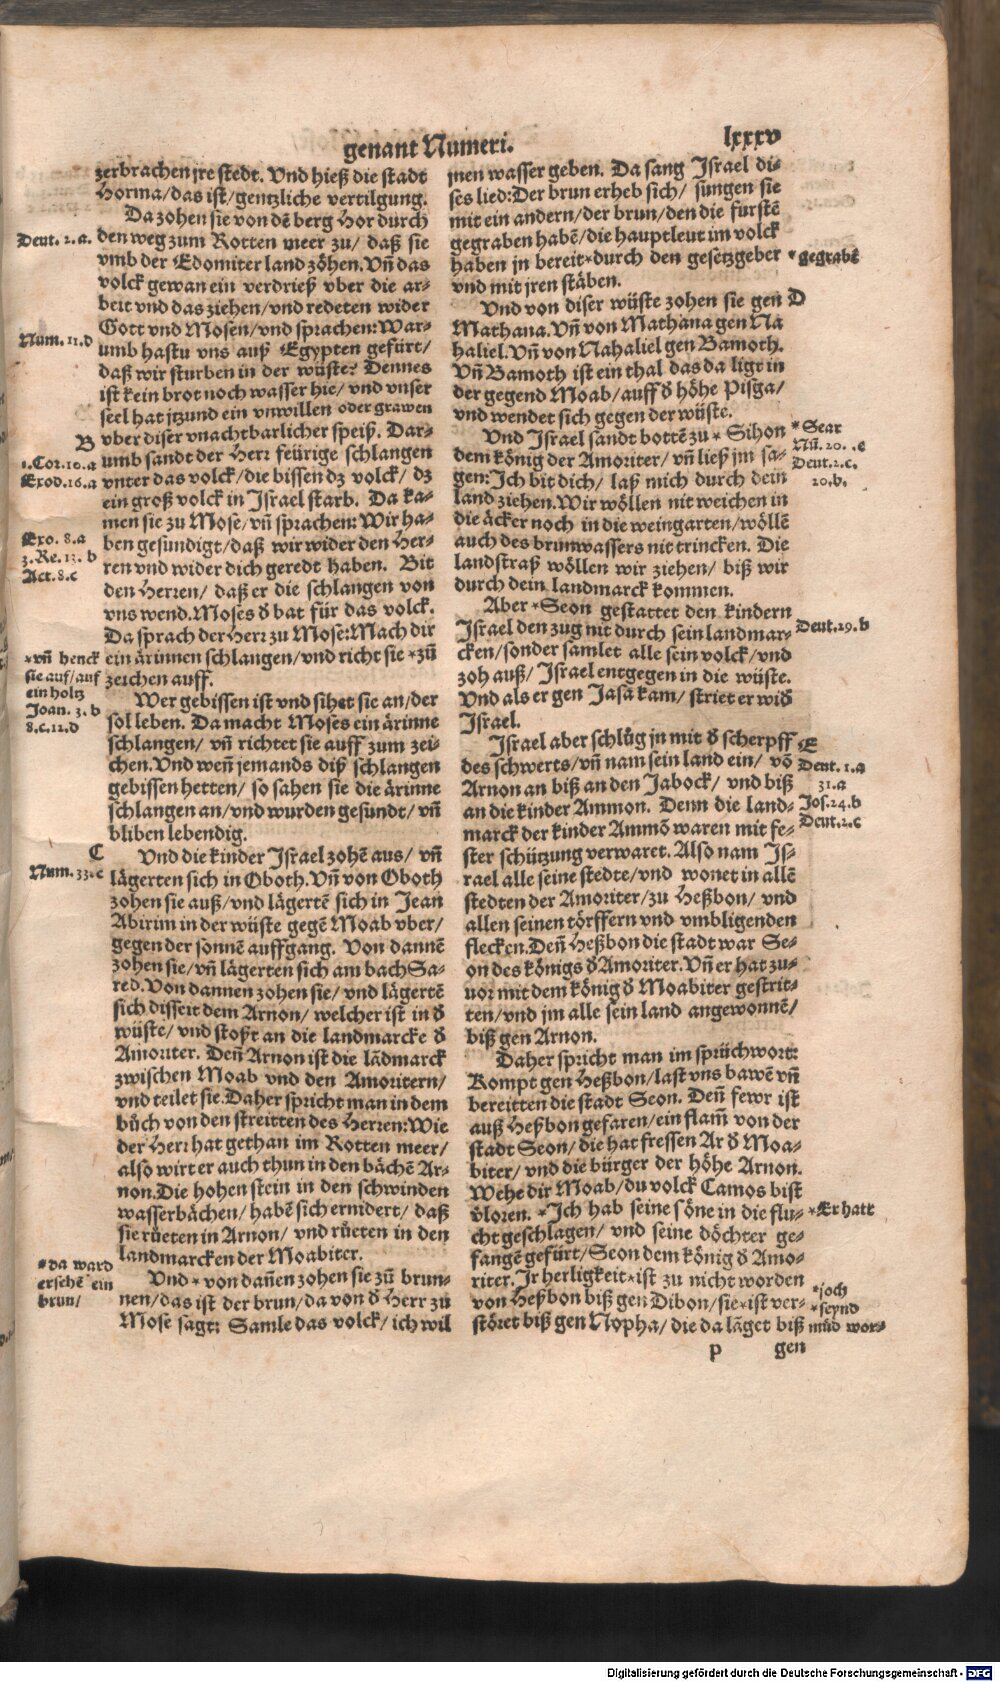 genant Numeri.
lxxxv
zerbrachen jre stedt. Vnd hieß die stadt
Horma/das ist/gentzliche vertilgung.
Da zohen sie von dē berg Hor durch
den weg zum Rotten meer zu/ daß sie
vmb der Edomiter land zöhen. Vñ das
volck gewan ein verdrieß vber die ar-
beit vnd das ziehen/vnd redeten wider
Gott vnd Mosen/vnd sprachen: War-
umb hastu vns auß Egypten gefürt/
daß wir sturben in der wüste? Dennes
ist kein brot noch wasser hie/ vnd vnser
seel hat jtzund ein vnwillen oder grawen
vber diser vnachtbarlicher speiß. Dar-
umb sandt der Herr feürige schlangen
vnter das volck/die bissen dz volck/ dz
ein groß volck in Israel starb. Da ka-
men sie zu Mose/vñ sprachen: Wir ha-
ben gesundigt/daß wir wider den Her-
ren vnd wider dich geredt haben. Bit
den Herren/ daß er die schlangen von
vns wend. Moses d bat für das volck.
Da sprach der Herr zu Mose: Mach dir
ein ärinnen schlangen/vnd richt sie *zů
zeichen auff.
Wer gebissen ist vnd sihet sie an/der
sol leben. Da macht Moses ein ärinne
schlangen/ vñ richtet sie auff zum zei-
chen. Vnd weñ jemands diß schlangen
gebissen hetten/ so sahen sie die ärinne
schlangen an/vnd wurden gesundt/ vñ
bliben lebendig.
Vnd die kinder Israel zohē aus/ vñ
lägerten sich in Oboth. Vñ von Oboth
zohen sie auß/vnd lägertē sich in Jean
Abirim in der wüste gegē Moab vber/
gegen der sonnē auffgang. Von dannē
zohen sie/vñ lägerten sich am bach Sa-
red. Von dannen zohen sie/ vnd lägertē
sich disseit dem Arnon/ welcher ist in d
wüste/ vnd stoßt an die landmarcke d
Amoriter. Deñ Arnon ist die lādmarck
zwischen Moab vnd den Amoritern/
vnd teilet sie. Daher spricht man in dem
bůch von den streitten des Herren: Wie
der Herr hat gethan im Rotten meer/
also wirt er auch thun in den bächē Ar-
non. Die hohen stein in den schwinden
wasserbächen/ habē sich ernidert/ daß
sie růeten in Arnon/ vnd růeten in den
landmarcken der Moabiter.
Vnd *von dañen zohen sie zů brun-
nen/das ist der brun/da von d Herr zu
Mose sagt: Samle das volck/ ich wil
Deut. 2.a.
Num. 11.d
B
1.Cor.10.a
Exod.16.a
Exo. 8.a
3.Re. 13. b
Act.8.c
*vñ henck
sie auf/auf
ein holtz
Joan. 3. b
8.c.12.d
C
Num. 33.c
*da ward
ersehē ein
brun/
jnen wasser geben. Da sang Israel di-
ses lied: Der brun erheb sich/ sungen sie
mit ein andern/der brun/den die furstē
gegraben habē/die hauptleut im volck
haben jn bereit*durch den gesetzgeber
vnd mit jren stäben.
Vnd von diser wüste zohen sie gen
Mathana. Vñ von Mathana gen Na
haliel. Vñ von Nahaliel gen Bamoth.
Vñ Bamoth ist ein thal das da ligt in
der gegend Moab/auff d höhe Pisga/
vnd wendet sich gegen der wüste.
Vnd Israel sandt bottē zu * Sihon
dem könig der Amoriter/ vñ ließ jm sa-
gen: Ich bit dich/ laß mich durch dein
land ziehen. Wir wöllen nit weichen in
die äcker noch in die weingarten/wöllē
auch des brunwassers nit trincken. Die
landstraß wöllen wir ziehen/ biß wir
durch dein landmarck kommen.
Aber *Seon gestattet den kindern
Israel den zug nit durch sein landmar-
cken/sonder samlet alle sein volck/vnd
zoh auß/ Israel entgegen in die wüste.
Vnd als er gen Jasa kam/ striet er wid
Israel.
Israel aber schlůg jn mit d scherpff
des schwerts/vñ nam sein land ein/ vō
Arnon an biß an den Jabock/ vnd biß
an die kinder Ammon. Denn die land-
marck der kinder Ammō waren mit fe-
ster schützung verwaret. Also nam Is-
rael alle seine stedte/vnd wonet in allē
stedten der Amoriter/zu Heßbon/ vnd
allen seinen törffern vnd vmbligenden
flecken. Deñ Heßbon die stadt war Se-
on des königs d Amoriter. Vñ er hat zu-
uor mit dem könig d Moabiter gestrit-
ten/vnd jm alle sein land angewonnē/
biß gen Arnon.
Daher spricht man im sprüchwort:
Kompt gen Heßbon/last vns bawē vñ
bereitten die stadt Seon. Deñ fewr ist
auß Heßbon gefaren/ein flam̄ von der
stadt Seon/die hat fressen Ar d Moa-
biter/ vnd die bürger der höhe Arnon.
Wehe dir Moab/du volck Camos bist
vloren. *Ich hab seine söne in die flu-
cht geschlagen/ vnd seine döchter ge-
fangē gefürt/Seon dem könig d Amo-
riter. Ir herligkeit*ist zu nicht worden
von Heßbon biß gen Dibon/sie*ist ver-
störet biß gen Nopha/die da lāget biß
*gegrabē
D
*Sear
Nu. 20. .c
Deut.2.c.
20.b.
Deut.29.b
E
Deut. 1.a
31.a
Jos.24.b
Deut.2.c
*Er hatt
*joch
*seynd
müd wor-
p
gen
Digitalisierung gefördert durch die Deutsche Forschungsgemeinschaft - DFG